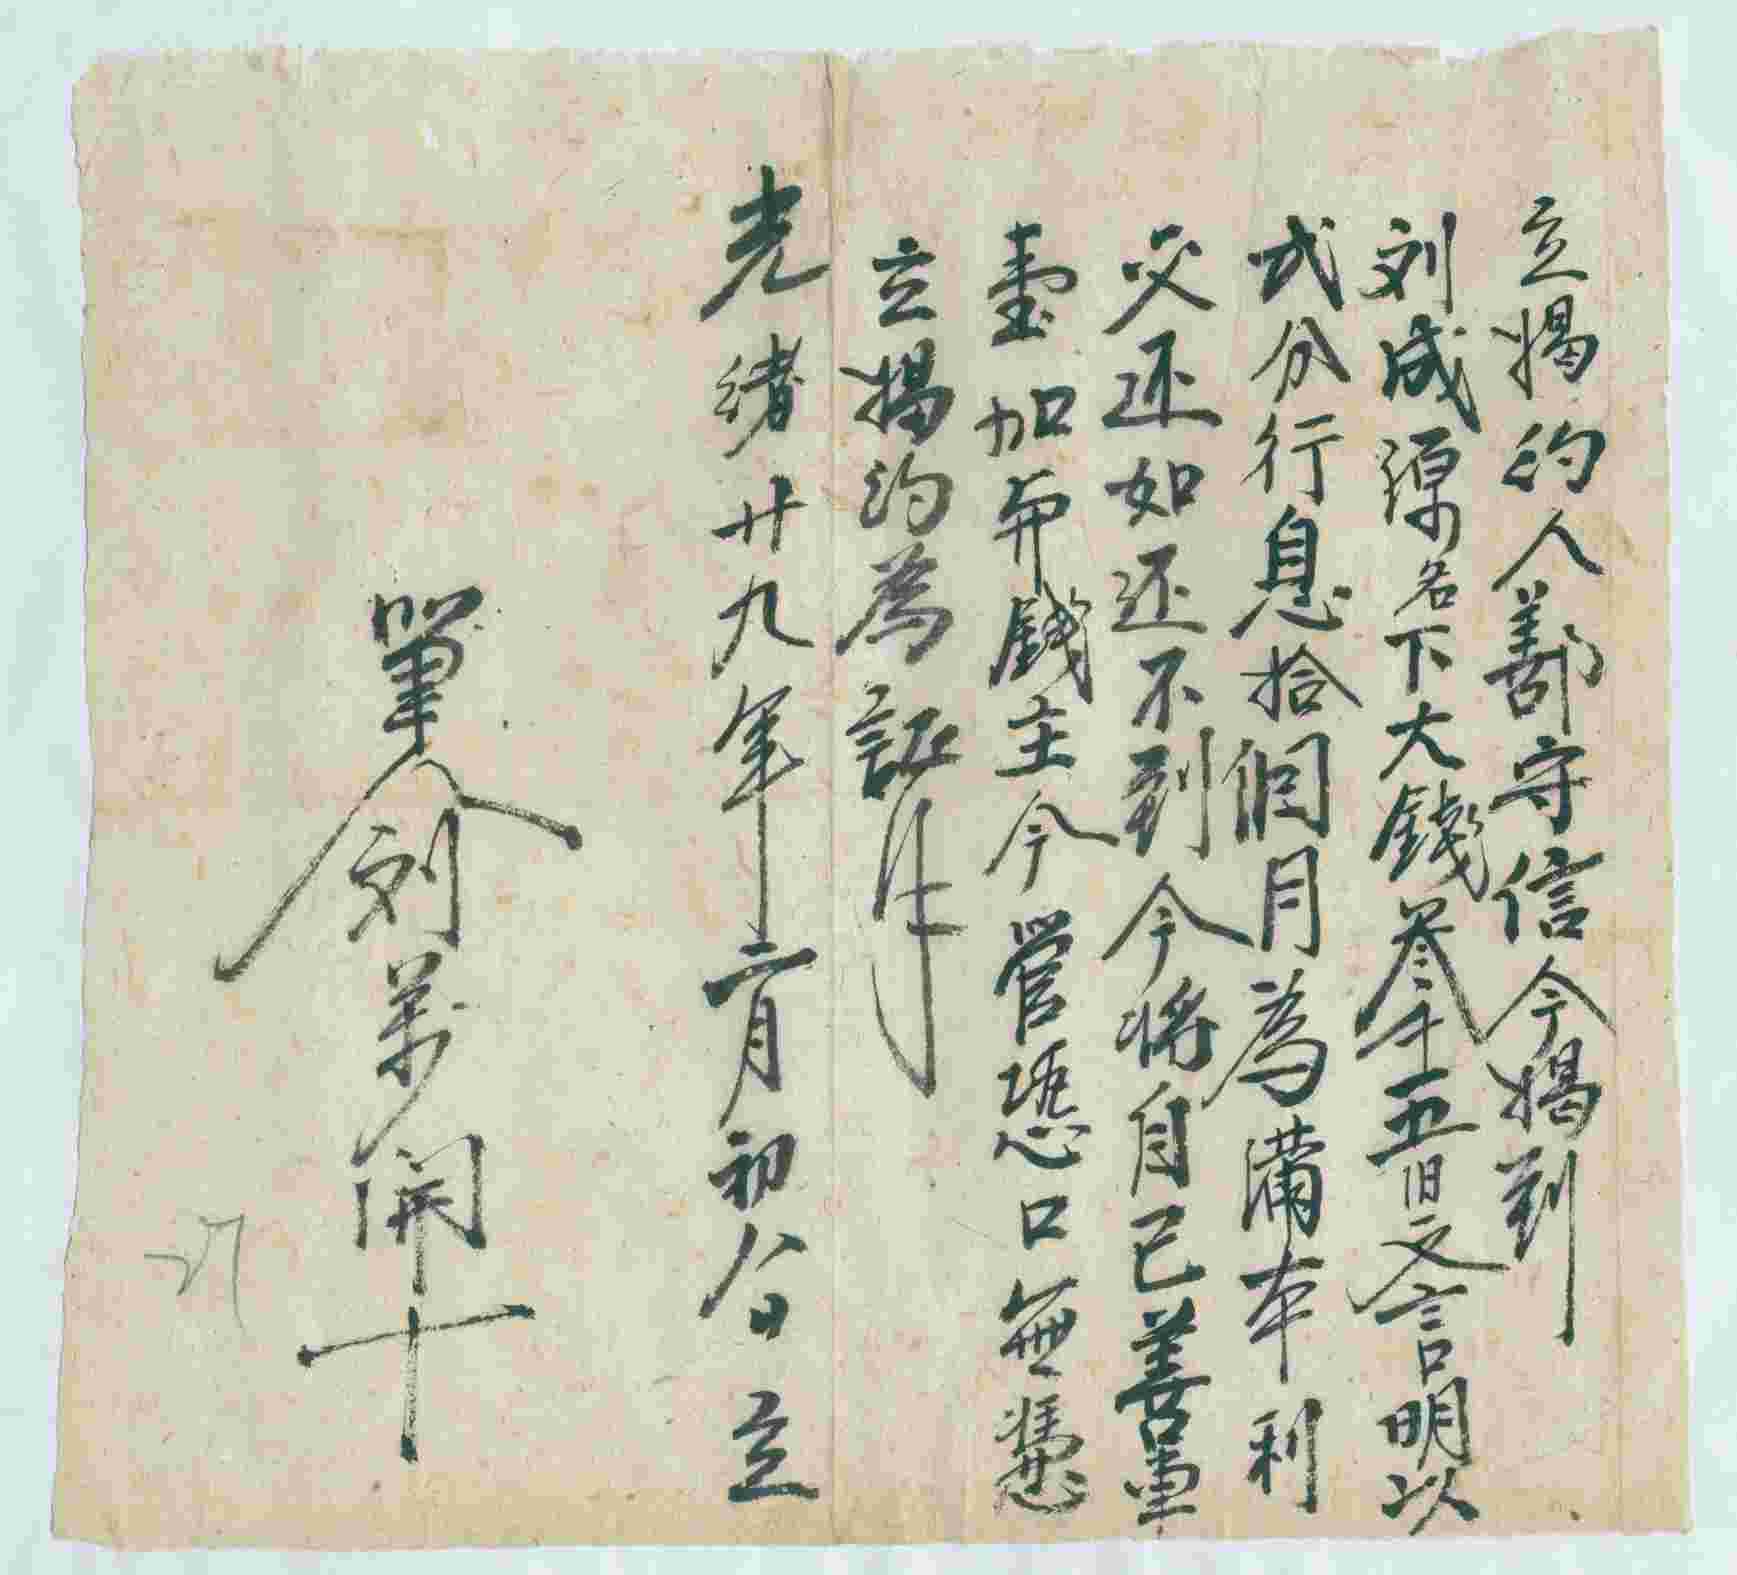 立揭约人鄯守信今揭到
刘成源名下大錢叁千五旧文言明以
弍分行息拾個月為滿本利
交还如还不到今将自己善車
壹加布錢主今管恐口無憑
立揭约為証
光绪廿九年二月初八日立
單人刘萬開十